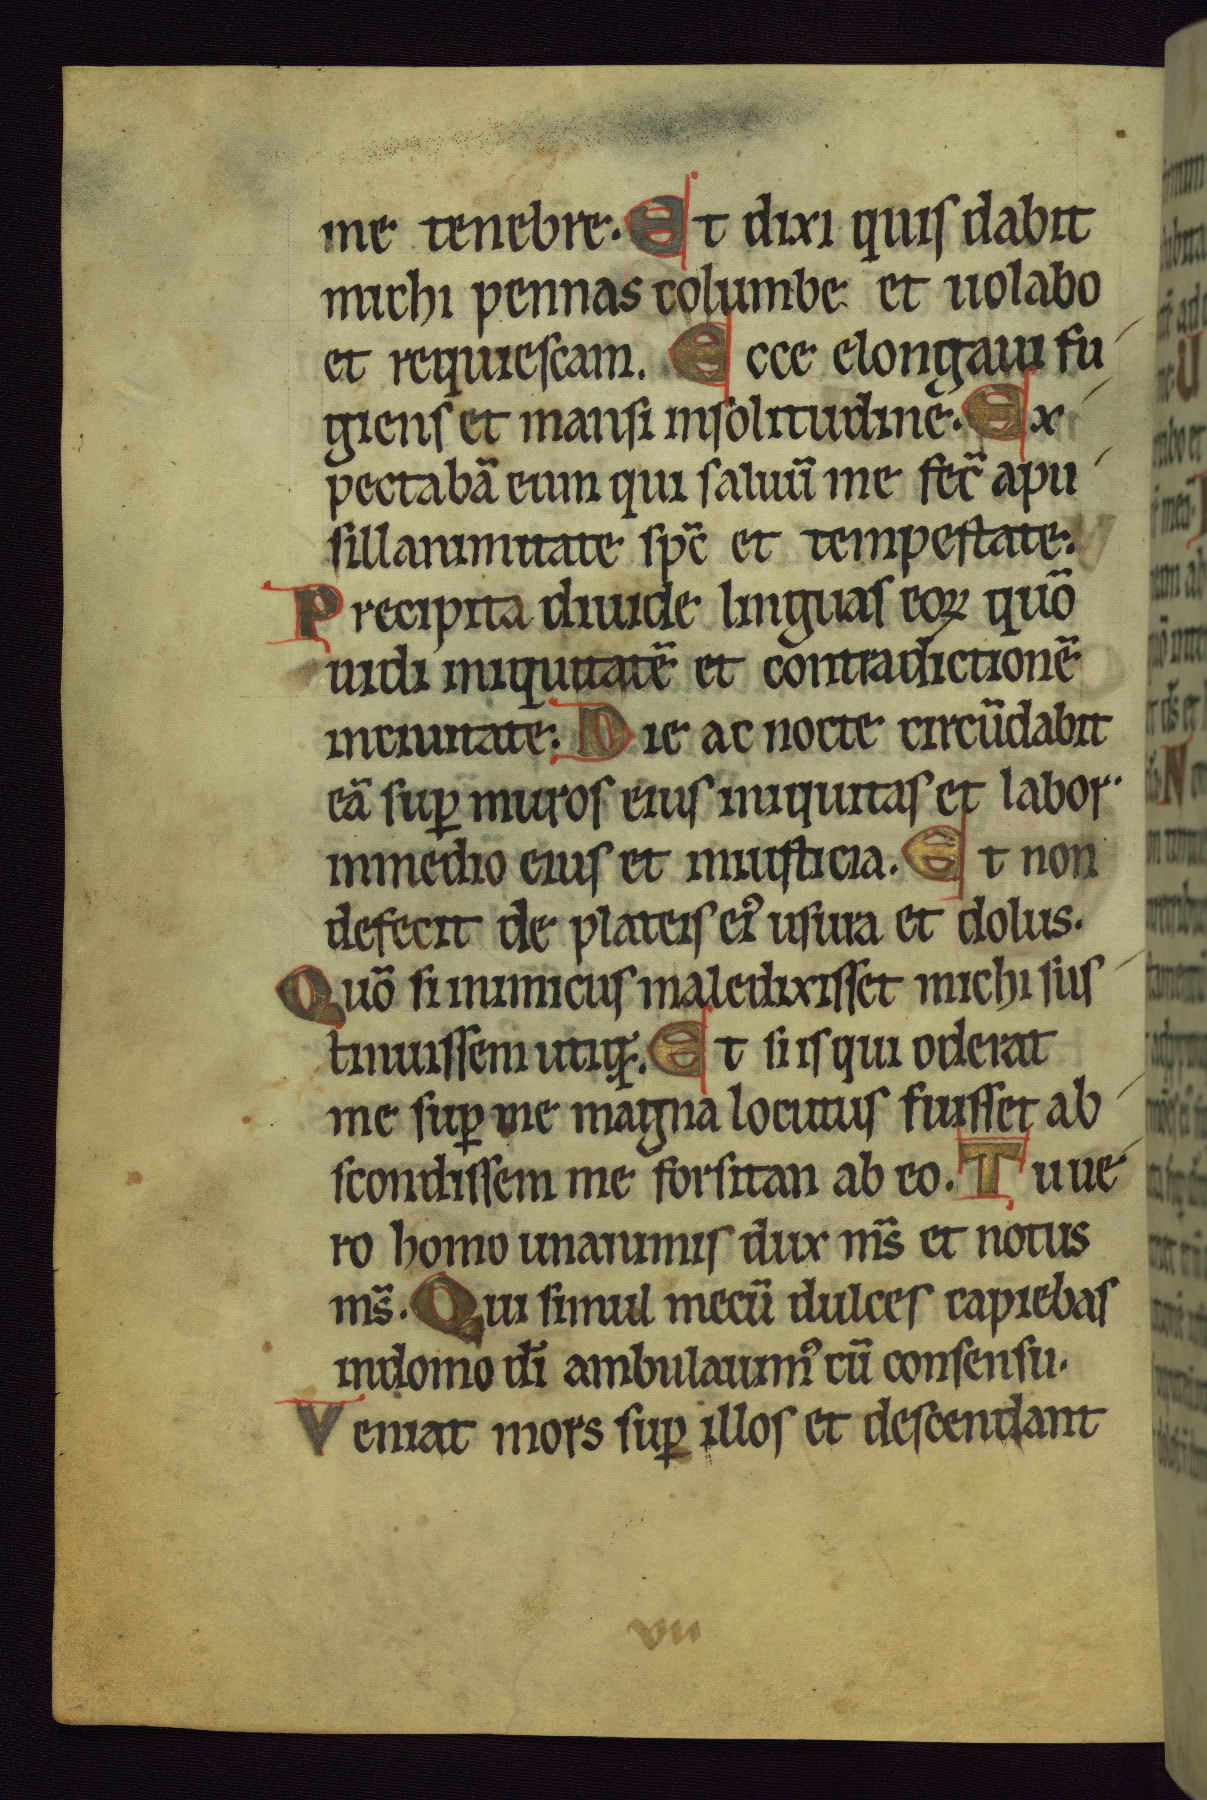 me tenebre. Et dixi quis dabit
michi pennas columbe et uolabo
et requiescam. Ecce elongaui fu
giens et mansi insolitudine. Ex
pectabā eum qui saluū me fec̄ apu
sillanimitate sp̄c et tempestate.
Precipita diuide linguas eoꝝ quō
uidi iniquitatē et contradictionē
inciuitate. Die ac nocte circūdabit
eā suꝑ muros eius iniquitas et labor
inmedio eius et iniusticia. Et non
defecit de plateis eiꝰ usura et dolus.
Quō si inimicus maledixisset michi sus
tinuissem utiqꝫ. Et si is qui oderat
me suꝑ me magna locutus fuisset ab
scondissem me forsitan ab eo. Tu ue
ro homo unanimis dux m̄s et notus
m̄s. Qui simul mecū dulces capiebas
indomo dī ambulauimꝰ cū consensu.
Veniat mors suꝑ illos et descendant
vii